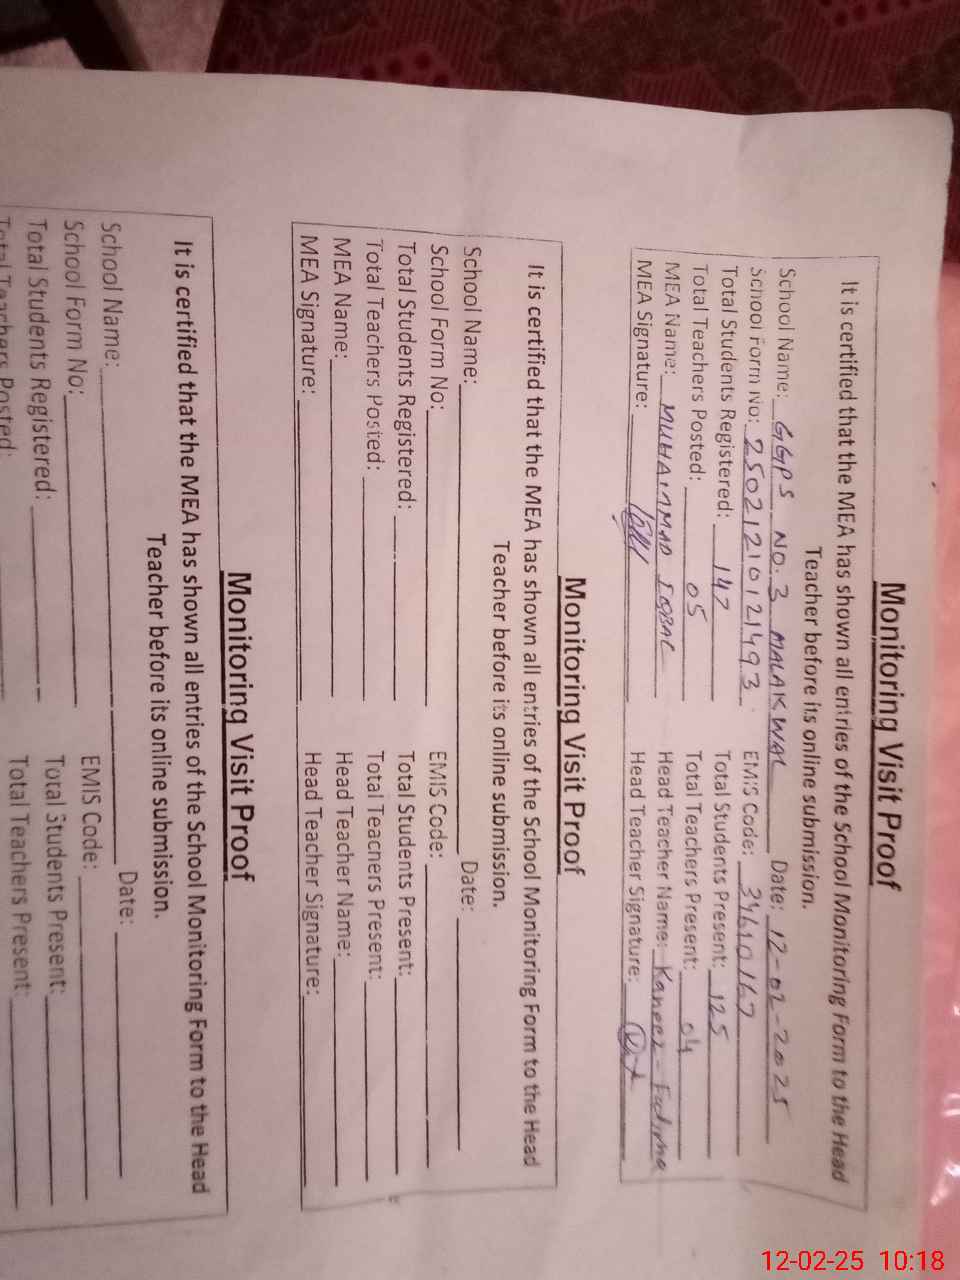 Monitoring Visit Proof
It is certified that the MEA has shown all entries of the School Monitoring Form to the Head
Teacher before its online submission.
School Name: GGPS NO.3 MALAKWAL Date: 12-02-2025
School Form No: 25021210121493 EMIS Code: 34610167
Total Students Registered: 147 Total Students Present: 125
Total Teachers Posted: 05 Total Teachers Present: 04
MEA Name: MUHAMMAD IQBAL Head Teacher Name: Kaneez-Fatima
MEA Signature: Head Teacher Signature:
Monitoring Visit Proof
It is certified that the MEA has shown all entries of the School Monitoring Form to the Head
Teacher before its online submission.
School Name: Date:
School Form No: EMIS Code:
Total Students Registered: Total Students Present:
Total Teachers Posted: Total Teachers Present:
MEA Name: Head Teacher Name:
MEA Signature: Head Teacher Signature:
Monitoring Visit Proof
It is certified that the MEA has shown all entries of the School Monitoring Form to the Head
Teacher before its online submission.
School Name: Date:
School Form No: EMIS Code:
Total Students Registered: Total Students Present:
Total Teachers Posted: Total Teachers Present:
12-02-25 10:18